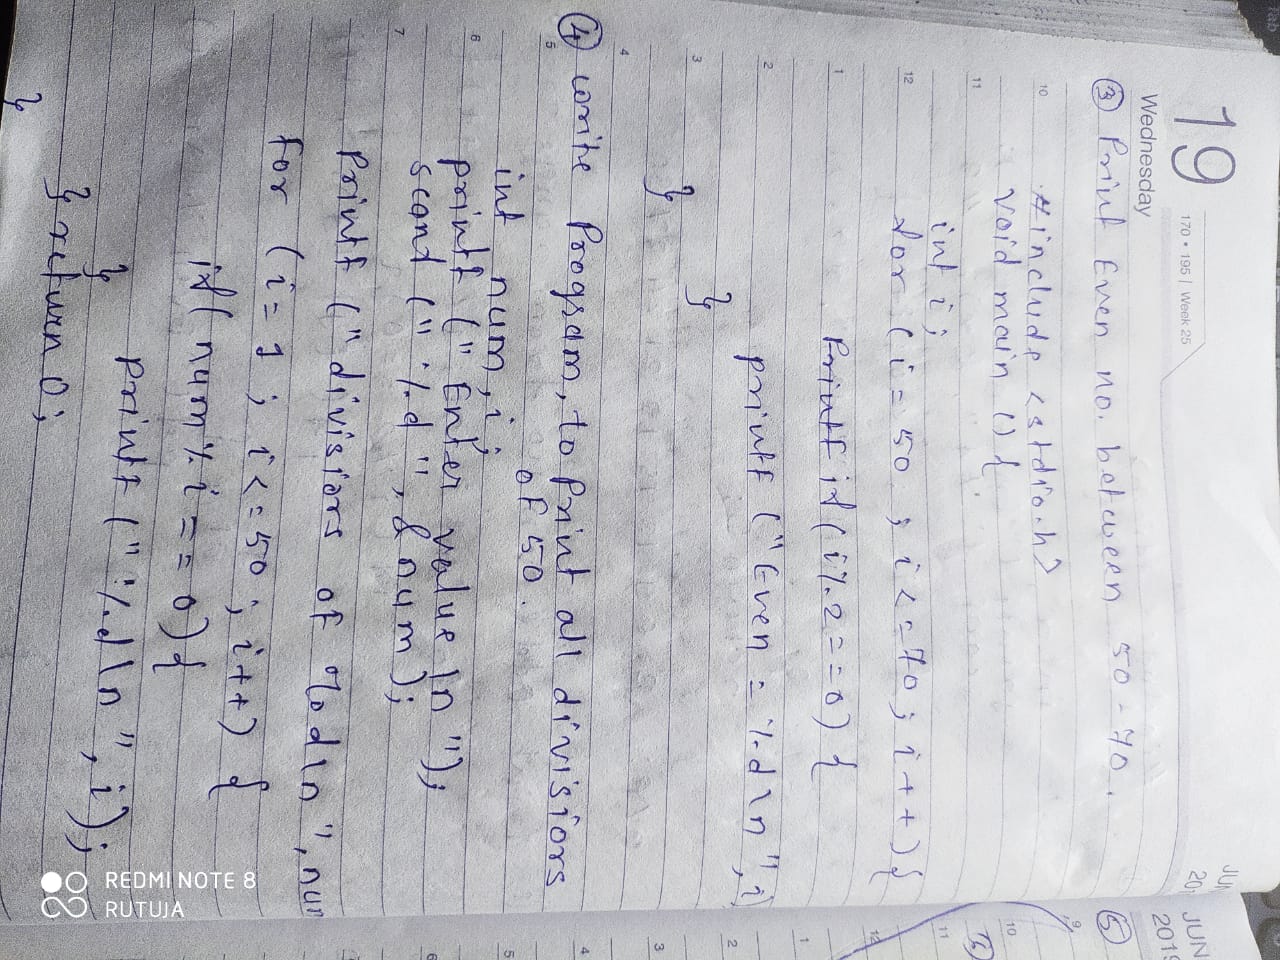 19
Wednesday
170 • 195 | Week 25
JUN
201
③ Print Even no. between 50-70.
10
#include <stdio.h>
11
void main () {
int i;
12
for (i=50 ; i<=70; i++){
1
Printf if(i%2==0) {
2
printf ("Even = %d\n", i)
3
}
}
4
④ write Program, to Print all divisiors
5
of 50.
int num, i;
6
printf ("Enter value \n");
scanf ("%d", &num);
7
Printf ("divisiors of %d\n", num
for (i=1; i<=50; i++) {
if( num % i == 0) {
Printf ("%d\n", i);
}
} return 0;
}
JUN
2019
⑤
9
10
11
12
1
2
3
4
5
6
REDMI NOTE 8
RUTUJA